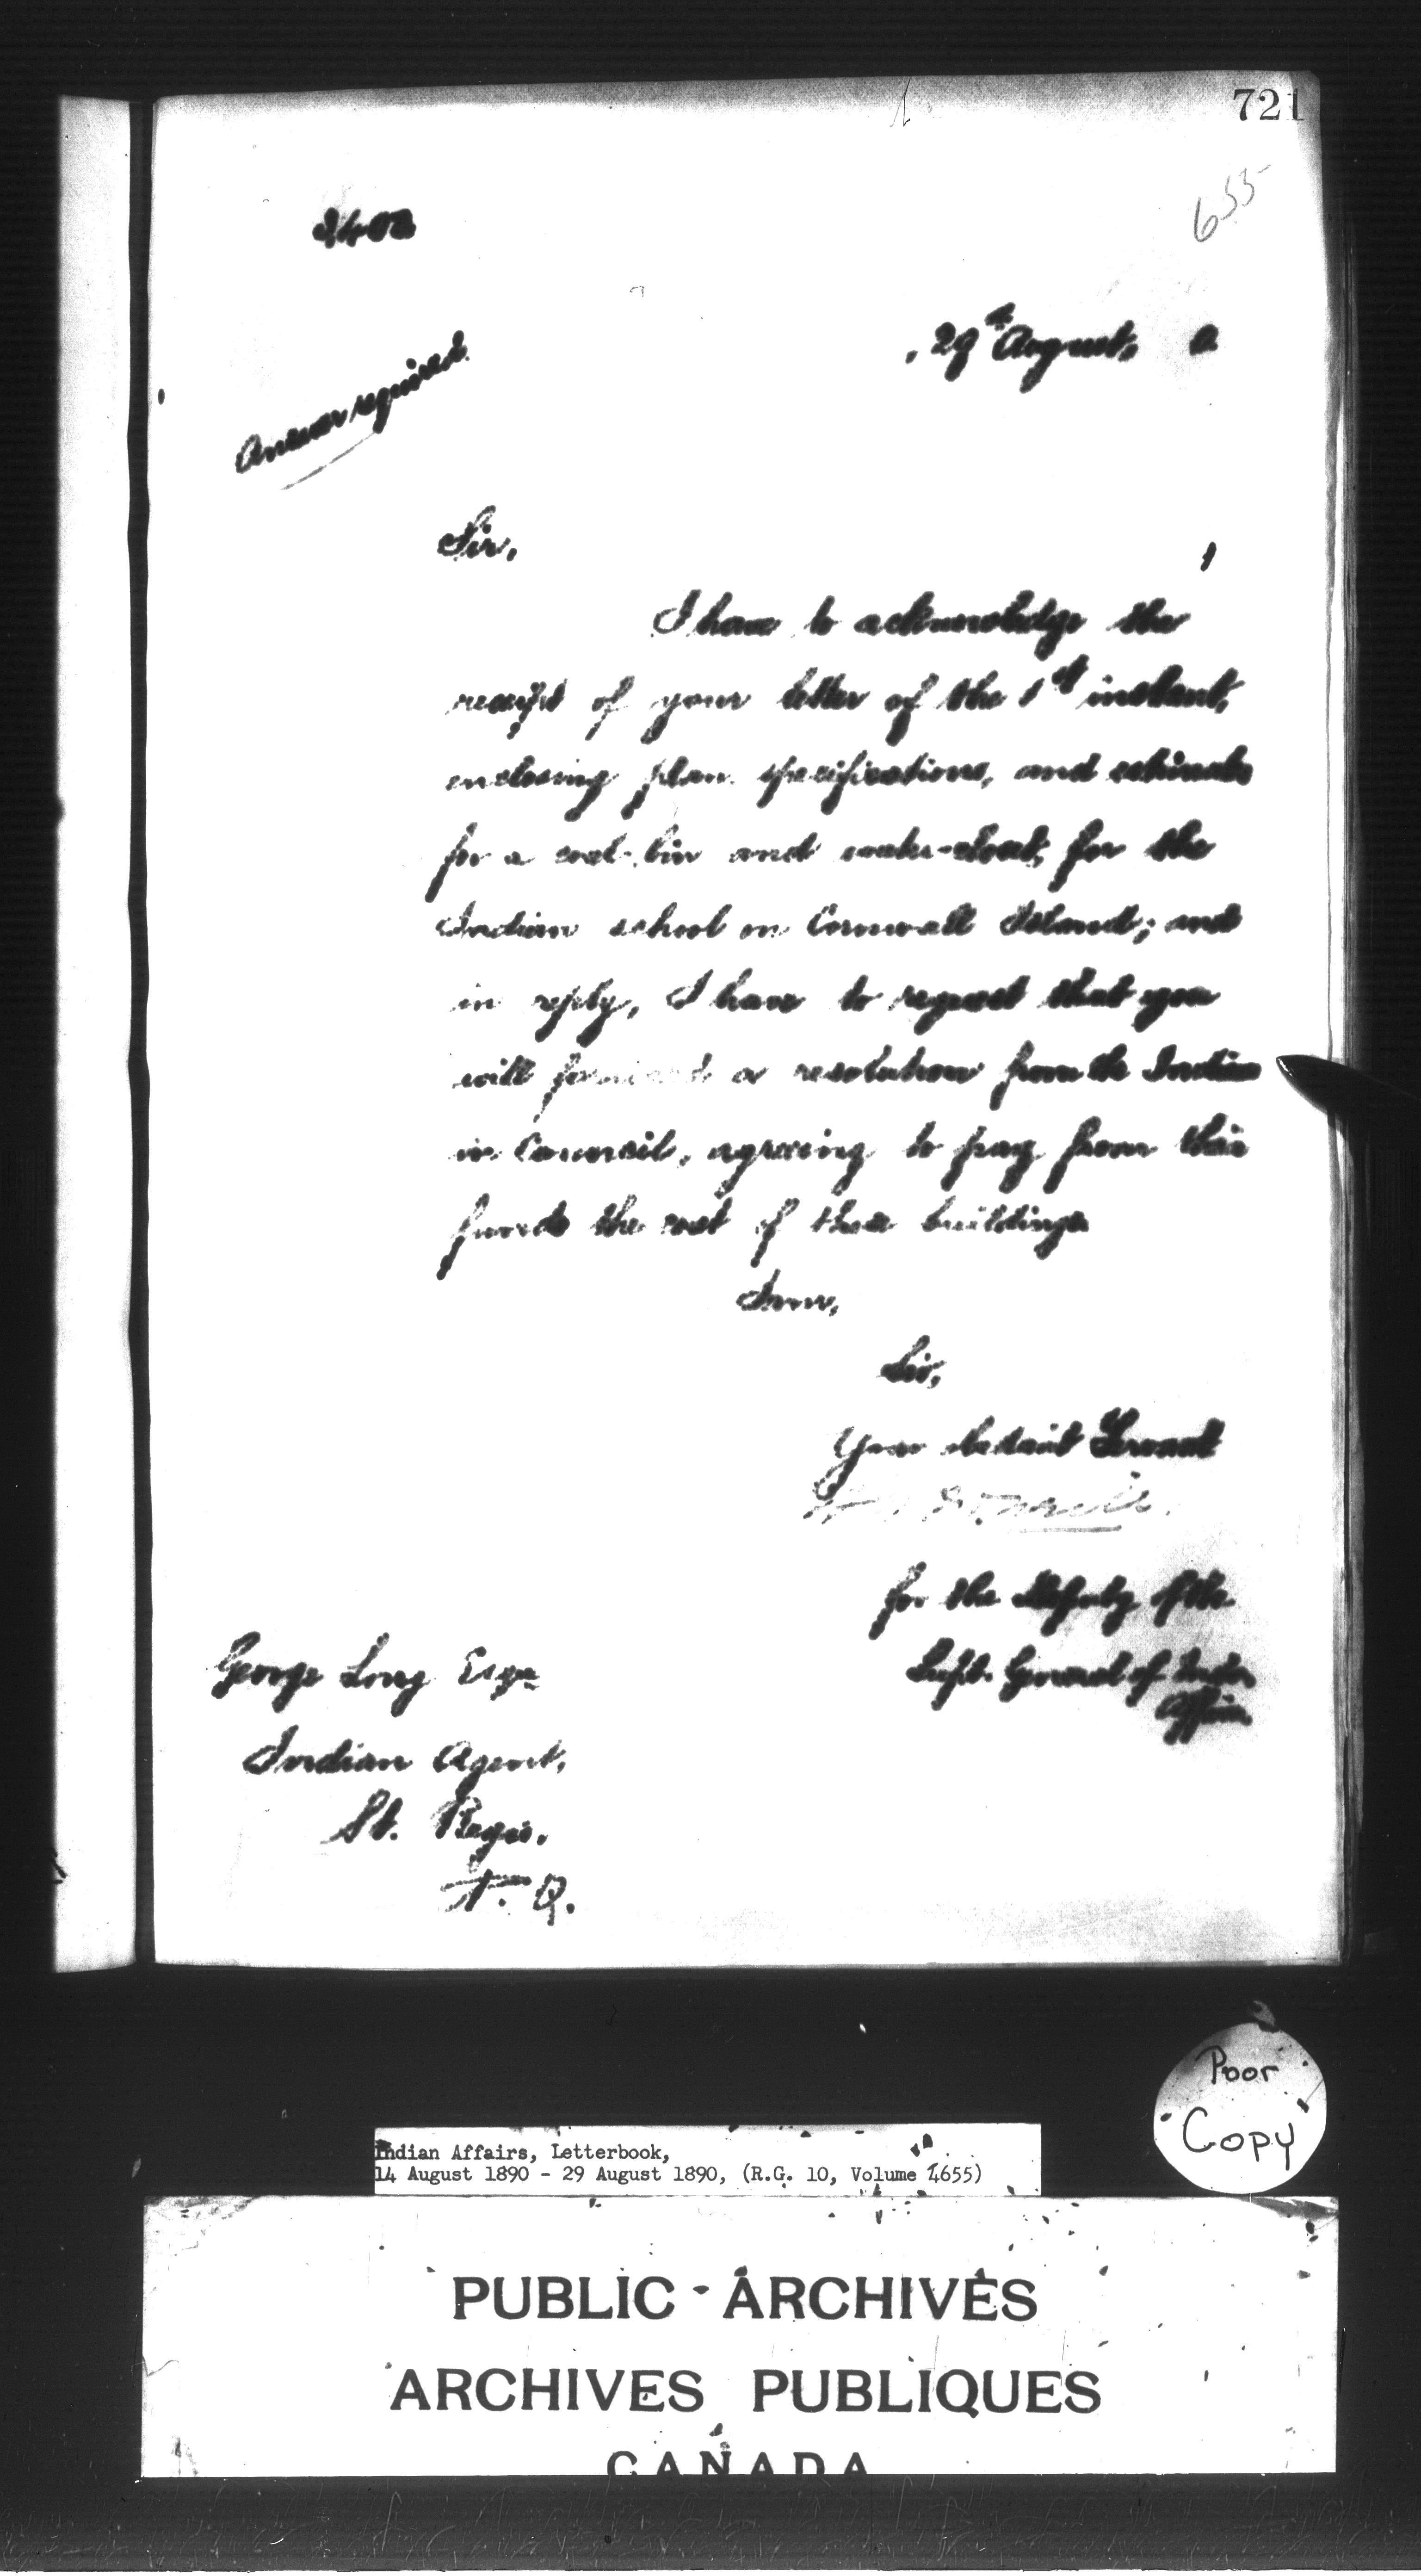 721
655
2402
29th August, 0
Answer required.
Sir,
I have to acknowledge the
receipt of your letter of the 1st instant,
enclosing plan, specifications, and estimate
for a coal-bin and water-closet, for the
Indian school on Cornwall Island; and
in reply, I have to request that you
will forward a resolution from the Indians
in Council, agreeing to pay from their
funds the cost of these buildings
I am,
Sir,
Your obedient Servant
for the Deputy of the
Supt. General of Indn
Affairs
George Long Esqre
Indian Agent,
St. Regis.
P. Q.
Poor
Copy
Indian Affairs, Letterbook,
14 August 1890 - 29 August 1890, (R.G. 10, Volume 4655)
PUBLIC - ARCHIVES
ARCHIVES PUBLIQUES
CANADA